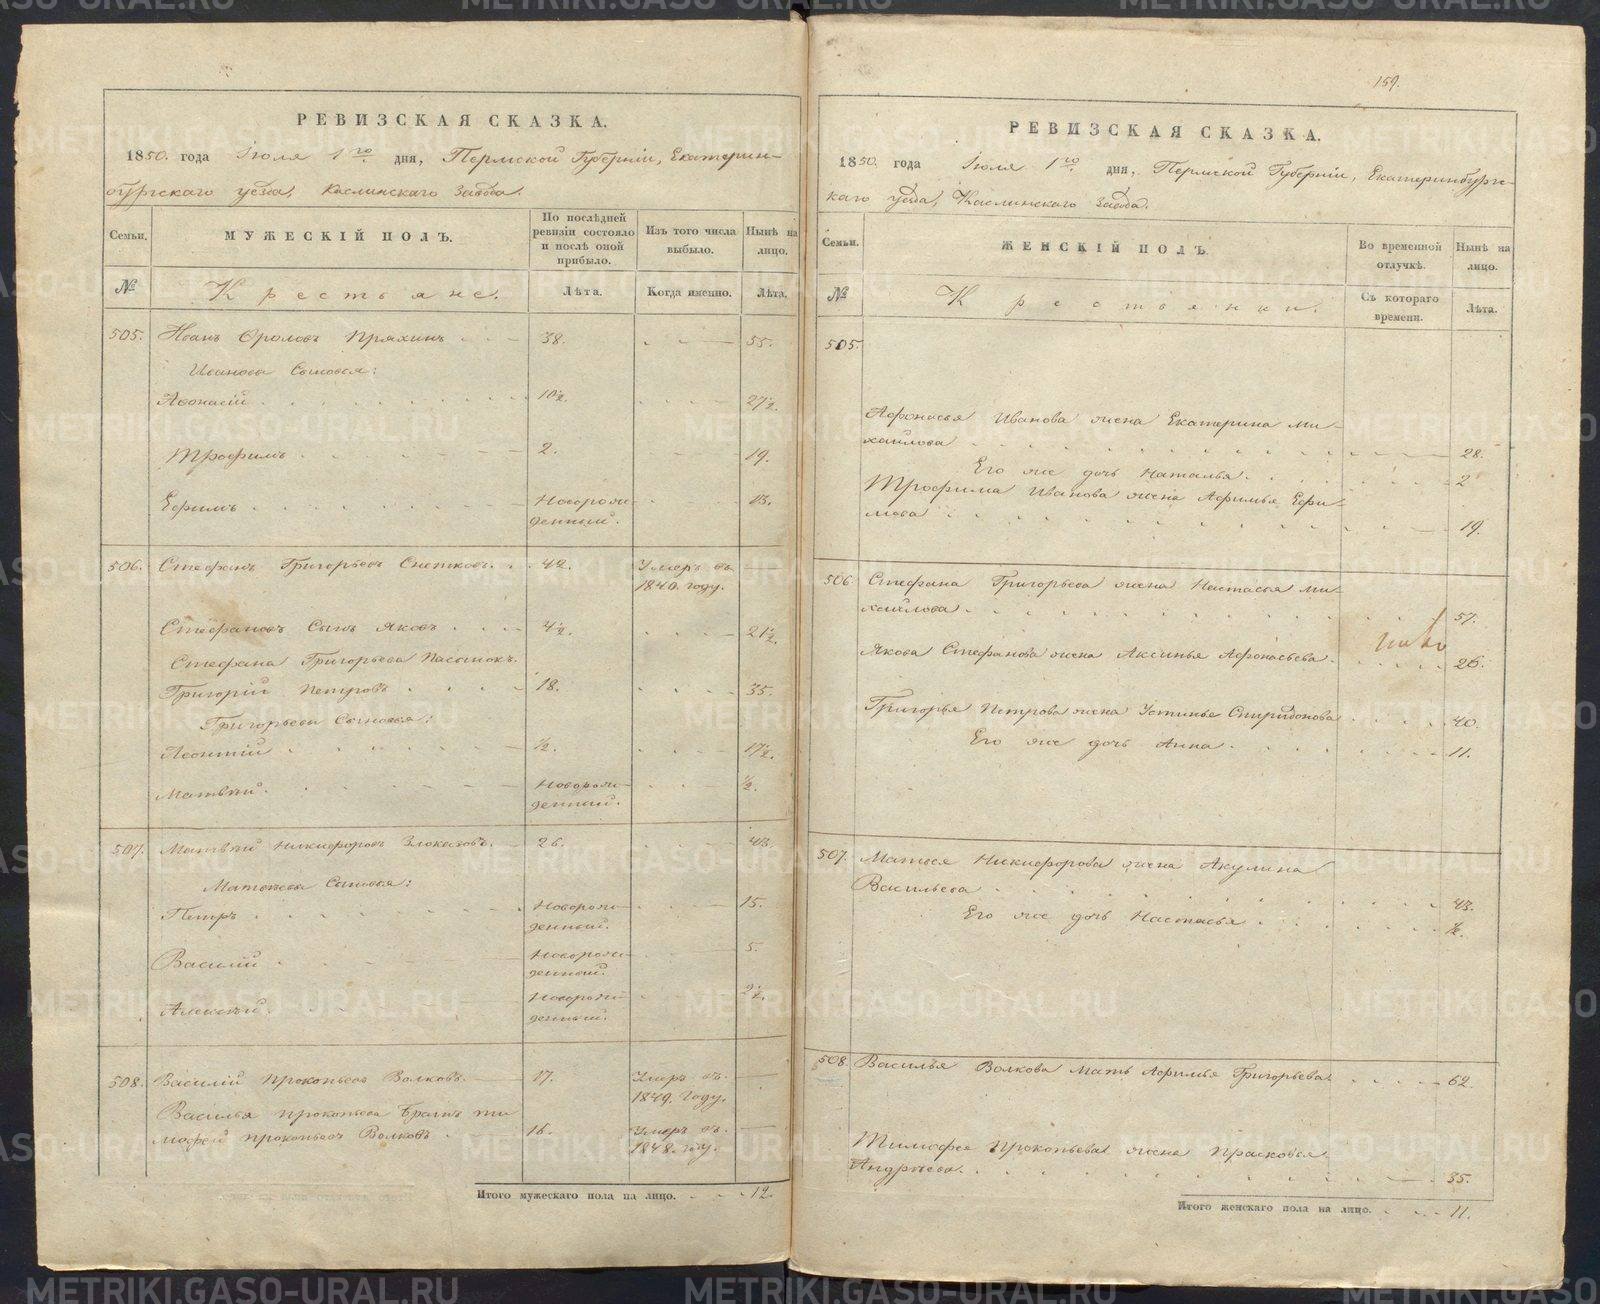 РЕВИЗСКАЯ СКАЗКА.
1850. года Іюля 1го дня, Пермской Губерніи, Екатерин-
бургскаго уезда, Каслинскаго Завода.
Семьи. МУЖЕСКІЙ ПОЛЪ. По послѣдней ревизіи состояло и послѣ оной прибыло. Изъ того числа выбыло. Нынѣ на лицо.
№ Крестьяне. Лѣта. Когда именно. Лѣта.
505. Иванъ Фроловъ Пряхинъ 38. 55.
Ивановы Сыновья:
Афонасій 10½. 27½.
Трофимъ 2. 19.
Ефимъ Новорож- 13.
денный.
506. Стефанъ Григорьевъ Снетковъ. 42. Умеръ въ
1840. году.
Стефановъ Сынъ Яковъ 4½. 21½.
Стефана Григорьева Пасынокъ
Григорій Петровъ 18. 35.
Григорьевы Сыновья:
Леонтій ½. 17½.
Матвѣй. Новорож- ½.
денный.
507. Матвѣй Никифоровъ Злоказовъ. 26. 43.
Матвѣевы Сыновья:
Петръ Новорож- 15.
денный.
Василій Новорож- 5.
денный.
Алексѣй. Новорож- 2½.
денный.
508. Василій Прокопьевъ Волковъ. 17. Умеръ въ
1849. году.
Василья Прокопьева Братъ Ти-
мофей Прокопьевъ Волковъ. 15. Умеръ въ
1848. году.
Итого мужескаго пола на лицо. 12.
159.
РЕВИЗСКАЯ СКАЗКА.
1850. года Іюля 1го дня, Пермской Губерніи, Екатеринбургс-
каго уезда, Каслинскаго Завода.
Семьи. ЖЕНСКІЙ ПОЛЪ. Во временной отлучкѣ. Нынѣ на лицо.
№ Крестьянки. Съ котораго времени. Лѣта.
505.
Афонасья Иванова жена Екатерина Ми-
хайлова 28.
Его же дочь Наталья. 2
Трофима Иванова жена Афимья Ефи-
мова 19.
506. Стефана Григорьева жена Настасья Ми-
хайлова. 57.
Якова Стефанова жена Аксинья Афонасьева. 26.
Григорья Петрова жена Устинья Спиридонова 40.
Его же дочь Анна. 11.
507. Матвея Никифорова жена Акулина
Васильева 43.
Его же дочь Настасья ½.
508. Василья Волкова Мать Афимья Григорьева 62.
Тимофея Прокопьева жена Прасковья
Андреева. 35.
Итого женскаго пола на лицо. 11.
METRIKI.GASO-URAL.RU